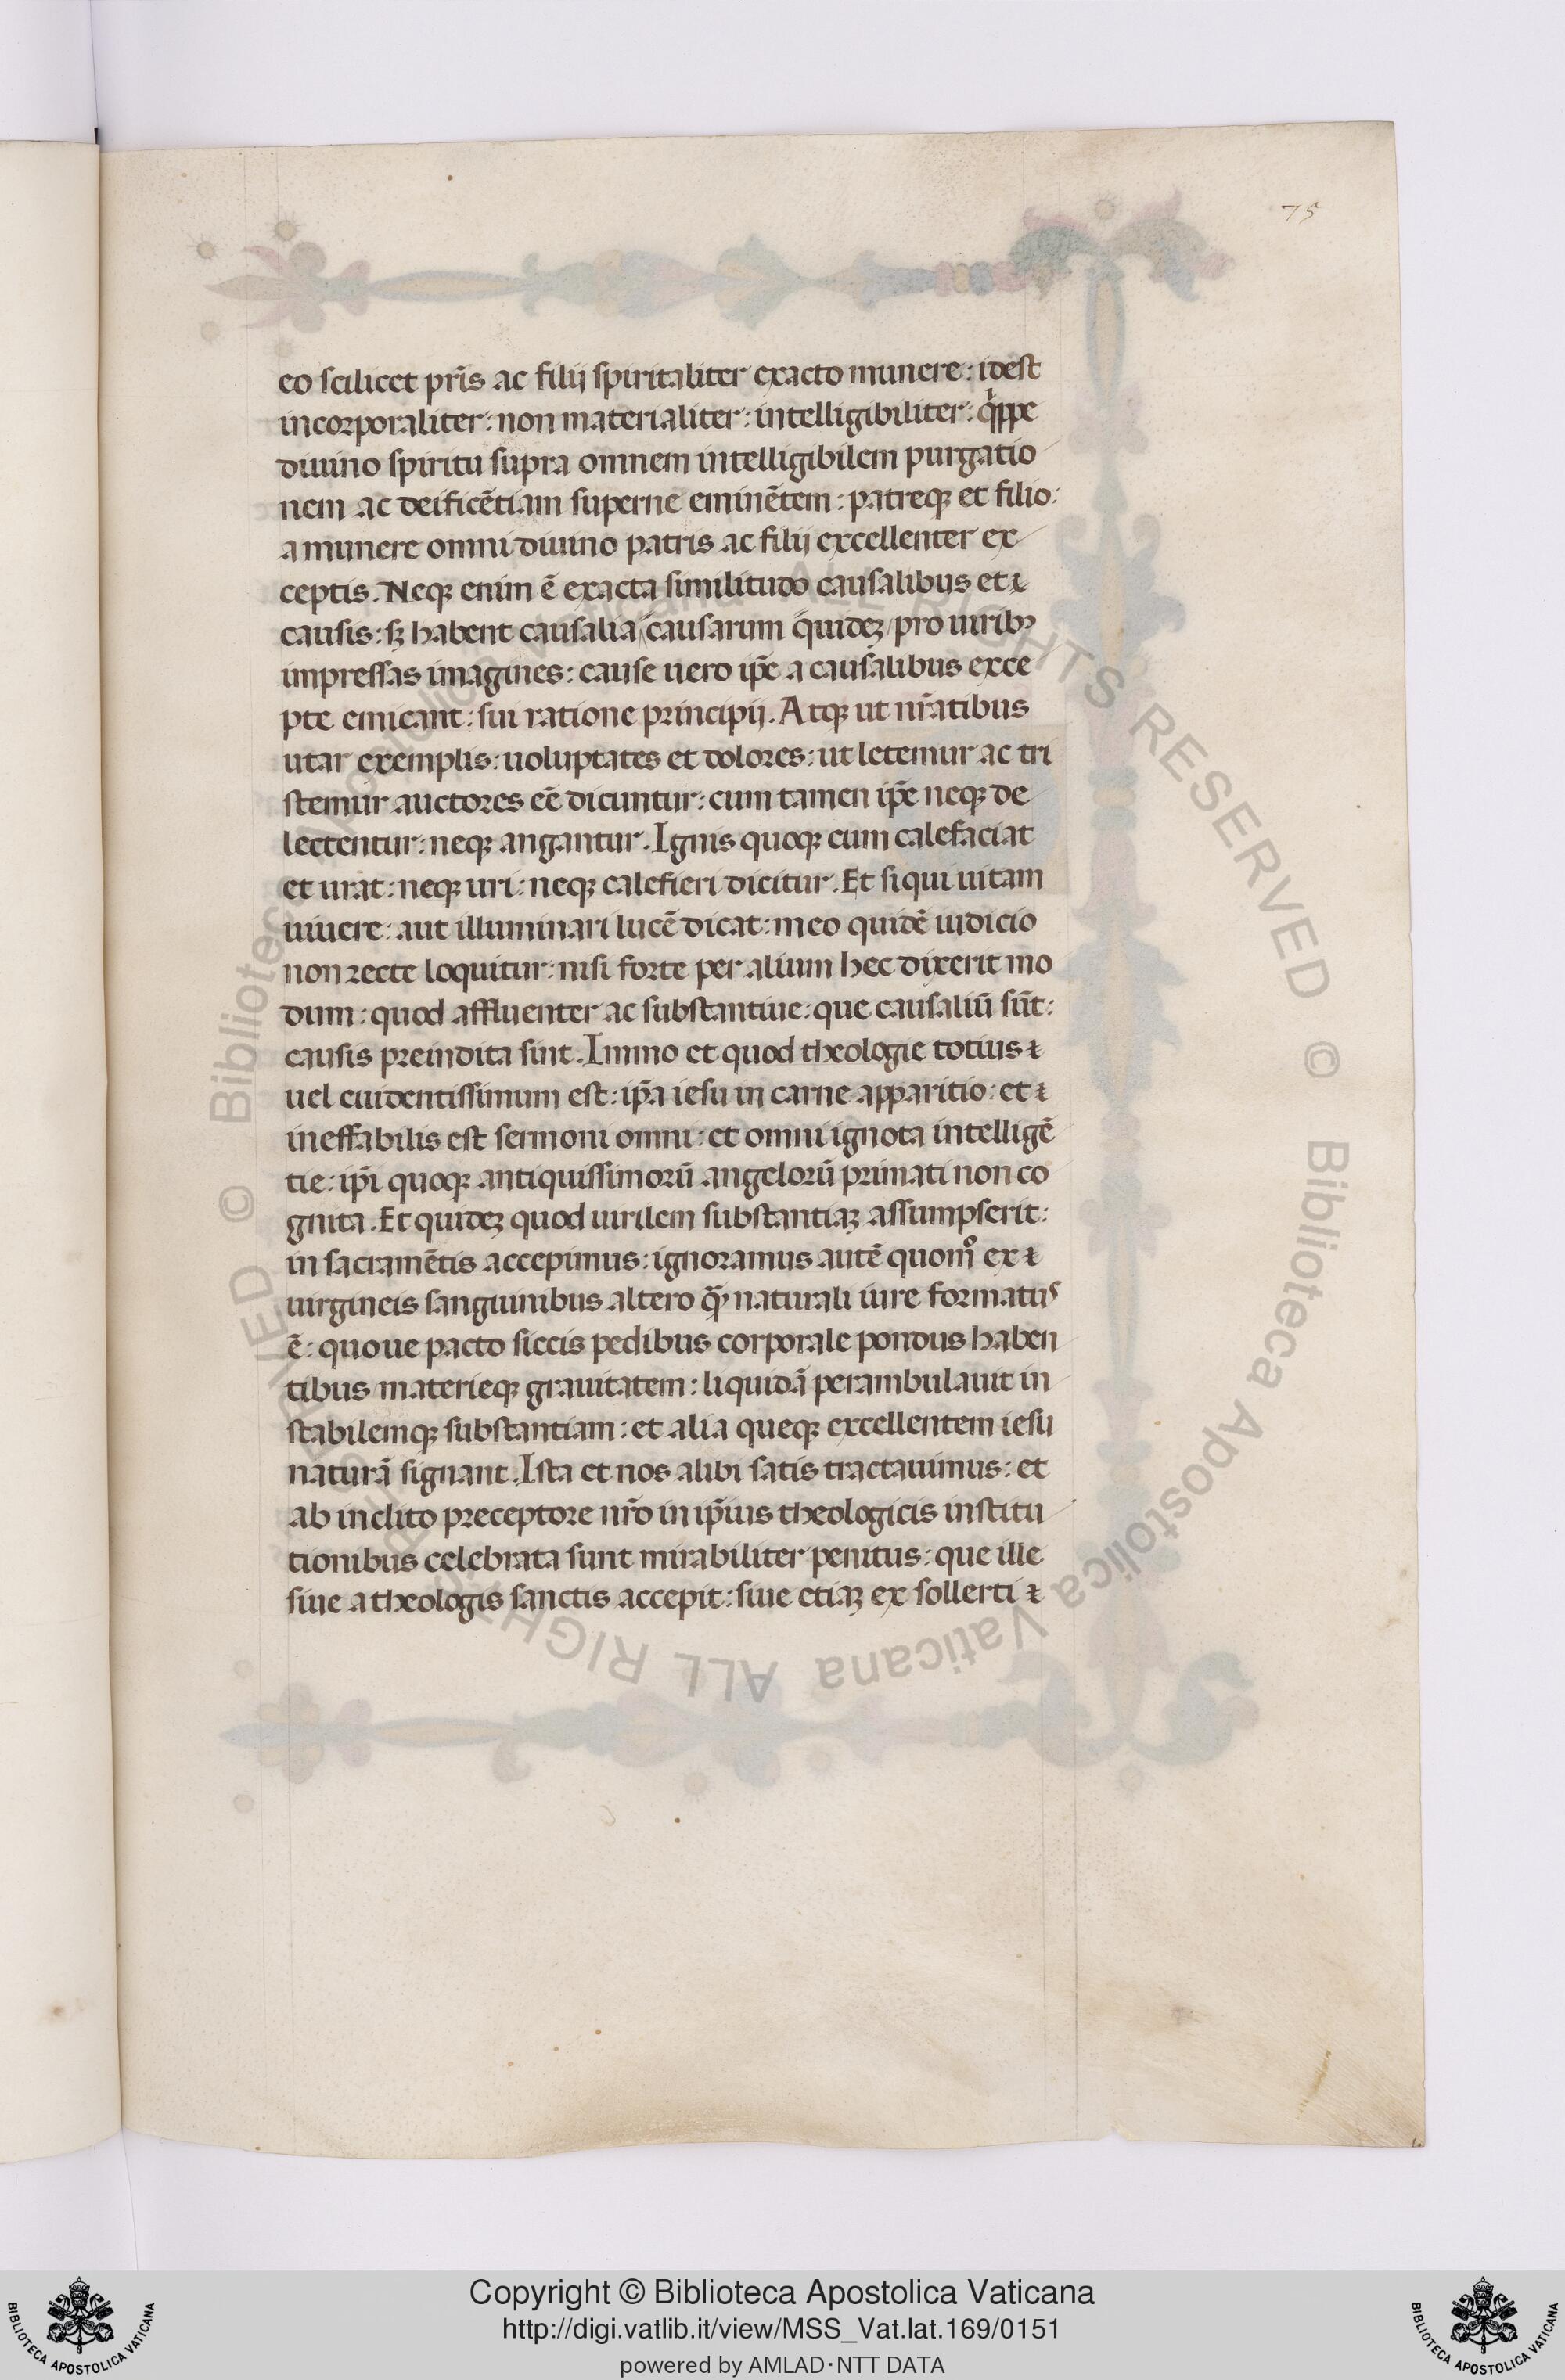 75
eo scilicet pr̃is ac filij spiritaliter exacto munere: idest
incorporaliter: non materialiter: intelligibiliter: q̇ppe
diuino spiritu supra omnem intelligibilem purgatio
nem ac deificẽtiam superne eminẽtem: patreqꝫ et filio:
a munere omni diuino patris ac filij excellenter ex
ceptis. Neqꝫ enim ẽ exacta similitudo causalibus et
causis: sꝫ habent causalia causarum q̇uideꝫ pro uiribꝰ
impressas imagines: cause uero ip̃e a causalibus exce
pte emicant: sui ratione principij. Atqꝫ ut nr̃atibus
utar exemplis: uoluptates et dolores: ut letemur ac tri
stemur auctores eẽ dicuntur: cum tamen ip̃e neqꝫ de
lectentur: neqꝫ angantur. Ignis quoqꝫ cum calefaciat
et urat: neqꝫ uri: neqꝫ calefieri dicitur. Et si qui uitam
uiuere: aut illuminari lucẽ dicat: meo quidẽ iudicio
non recte loquitur: nisi forte per alium hec dixerit mo
dum: quod affluenter ac substantiue: que causaliũ sũt:
causis preindita sint. Immo et quod theologie totius
uel euidentissimum est: ip̃a iesu in carne apparitio: et
ineffabilis est sermoni omni: et omni ignota intelligẽ
tie: ip̃i quoqꝫ antiquissimorũ angelorũ primati non co
gnita. Et quideꝫ quod uirilem substantiaꝫ assumpserit:
in sacramẽtis accepimus: ignoramus autẽ quomº ex
uirgineis sanguinibus altero qꝫ̃ naturali iure formatus
ẽ: quoue pacto siccis pedibus corporale pondus haben
tibus materieqꝫ grauitatem: liquidã perambulauit in
stabilemqꝫ substantiam: et alia queqꝫ excellentem iesu
naturã signant. Ista et nos alibi satis tractauimus: et
ab inclito preceptore nr̃o in ip̃ius theologicis institu
tionibus celebrata sunt mirabiliter penitus: que ille
siue a theologis sanctis accepit: siue etiaꝫ ex sollerti
© Biblioteca Apostolica Vaticana ALL RIGHTS RESERVED © Biblioteca Apostolica Vaticana ALL RIGHTS RESERVED
Copyright © Biblioteca Apostolica Vaticana
http://digi.vatlib.it/view/MSS_Vat.lat.169/0151
powered by AMLAD·NTT DATA
BIBLIOTECA APOSTOLICA VATICANA
BIBLIOTECA APOSTOLICA VATICANA